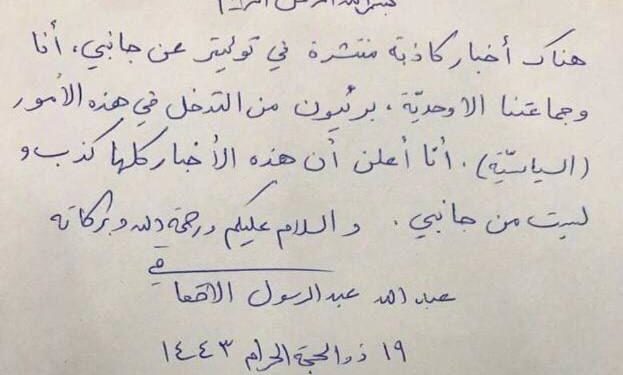 بسم الله الرحمن الرحيم
هناك أخبار كاذبة منتشرة في توئيتر عن جانبي، أنا
وجماعتنا الاوحديّة، برئيون من التدخل في هذه الأمور
(السياسيّة). أنا أعلن أن هذه الأخبار كلها كذب و
ليست من جانبي. والسلام عليكم ورحمة الله وبركاته
في
عبد الله عبد الرسول
١٩ ذو الحجة الحرام ١٤٤٣